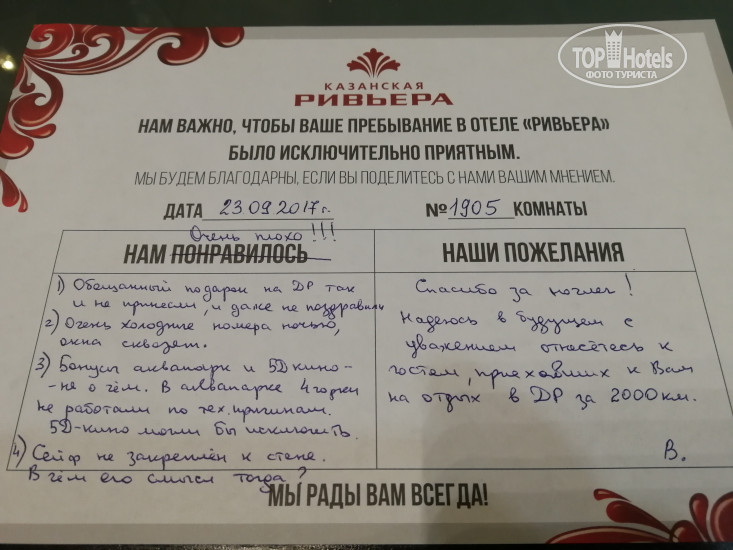 TOP Hotels
ФОТО ТУРИСТА
КАЗАНСКАЯ
РИВЬЕРА
НАМ ВАЖНО, ЧТОБЫ ВАШЕ ПРЕБЫВАНИЕ В ОТЕЛЕ «РИВЬЕРА»
БЫЛО ИСКЛЮЧИТЕЛЬНО ПРИЯТНЫМ.
МЫ БУДЕМ БЛАГОДАРНЫ, ЕСЛИ ВЫ ПОДЕЛИТЕСЬ С НАМИ ВАШИМ МНЕНИЕМ.
ДАТА 23.09.2017г. №1905 КОМНАТЫ
Очень плохо!!!
НАМ ПОНРАВИЛОСЬ
1) Обещанный подарок на ДР так
и не принесли, и даже не поздравили
2) Очень холодные номера ночью,
окна сквозят.
3) Бонусы аквапарк и 5D кино -
- не о чём. В аквапарке 4 горки
не работали по тех. причинам.
5D-кино могли бы исключить.
4) Сейф не закреплён к стене.
В чём его смысл тогда?
НАШИ ПОЖЕЛАНИЯ
Спасибо за ночлег!
Надеюсь в будущем с
уважением отнесётесь к
гостям, приехавших к Вам
на отдых в ДР за 2000 км.
В.
МЫ РАДЫ ВАМ ВСЕГДА!